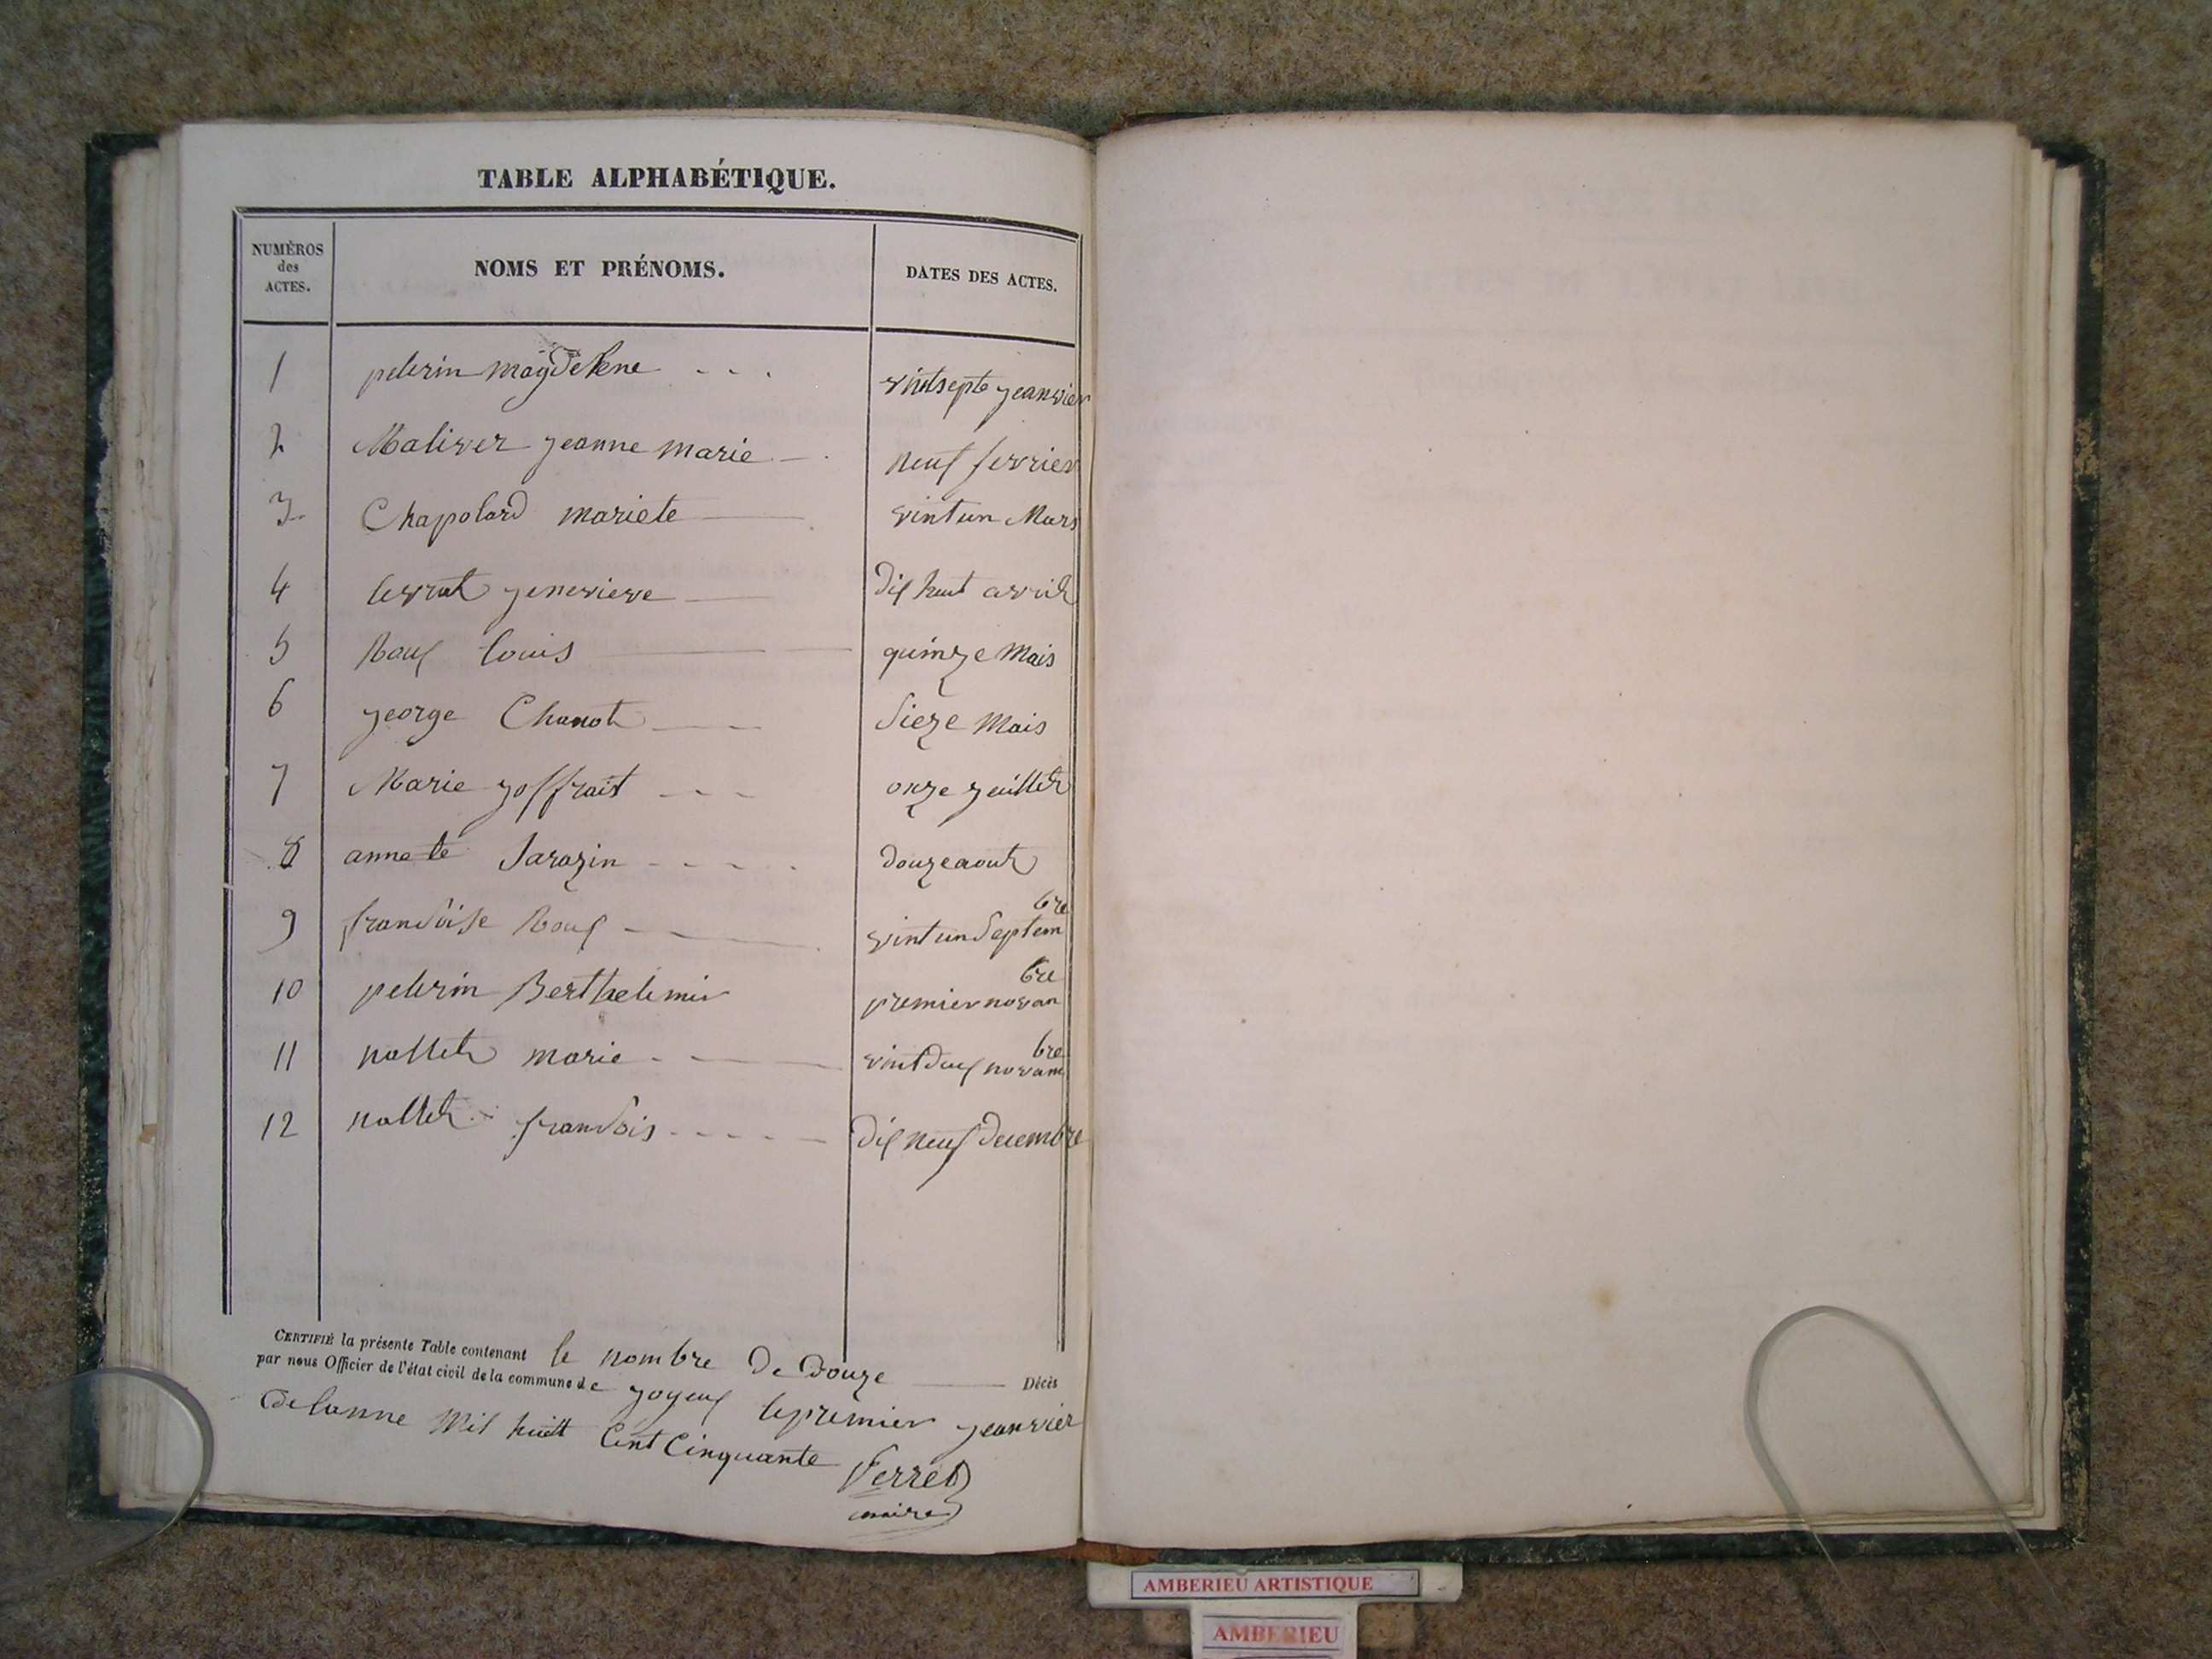 TABLE ALPHABÉTIQUE.
NUMÉROS des ACTES. NOMS ET PRÉNOMS. DATES DES ACTES.
1 pelerin magdelene vintsepte jeanvier
2 Maliver jeanne marie neuf fevrier
3 Chapolard mariete vintun Mars
4 levrat jenevieve dix huit avril
5 Roux louis quinze Mais
6 george Chanot sieze Mais
7 Marie joffrait onze jeuillet
8 annete Sarazin douze aout
9 fransoise Roux vintun Septembre
10 pelerin Berthelemir premier novanbre
11 nallet marie vintdeux novambre
12 nallet fransois dix neuf decembre
CERTIFIÉ la présente Table contenant le nombre De Douze Décès
par nous Officier de l'état civil de la commune de joyeux le premier jeanvier
de lanne Mil huitt Cent Cinquante
Perret
maire
AMBERIEU ARTISTIQUE
AMBERIEU